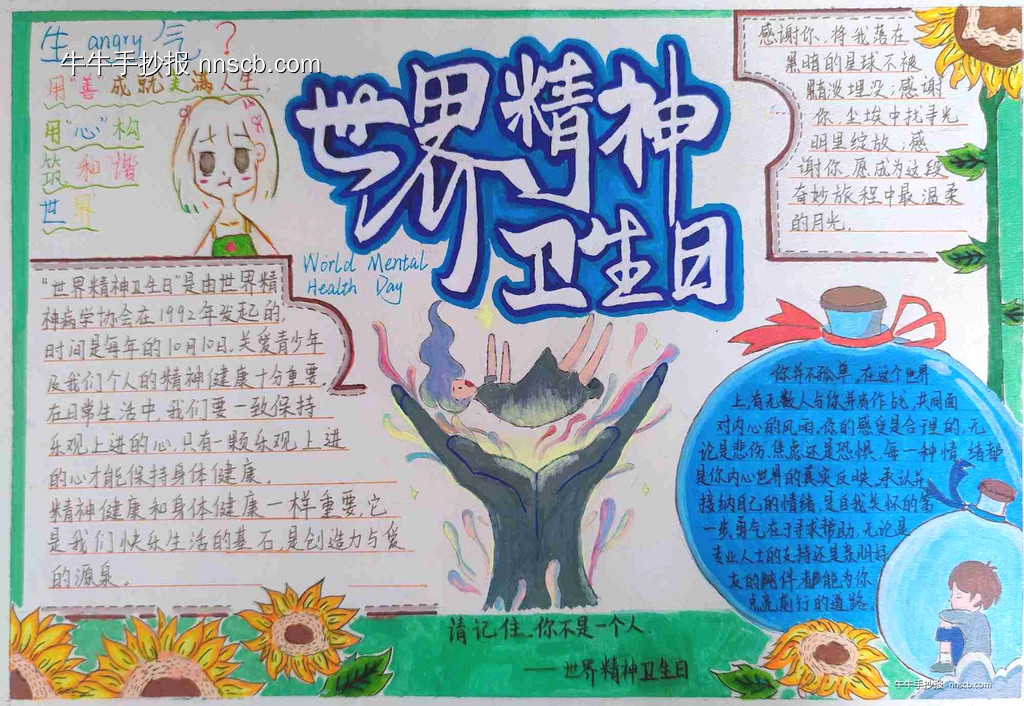 生 angry 气？
牛牛手抄报 nnscb.com
用"善"成就美满人生,
用"心"构
筑和谐
世界
世界精神
卫生日
World Mental
Health Day
感谢你,将我落在
黑暗的星球不被
黯淡埋没;感谢
你,尘埃中找寻光
明里绽放;感
谢你,愿成为这段
奇妙旅程中最温柔
的月光.
"世界精神卫生日"是由世界精
神病学协会在1992年发起的,
时间是每年的10月10日.关爱青少年
及我们个人的精神健康十分重要,
在日常生活中,我们要一致保持
乐观上进的心,只有一颗乐观上进
的心才能保持身体健康.
精神健康和身体健康一样重要,它
是我们快乐生活的基石,是创造力与爱
的源泉。
你并不孤单,在这个世界
上,有无数人与你并肩作战,共同面
对内心的风雨,你的感受是合理的,无
论是悲伤,焦虑还是恐惧,每一种情绪都
是你内心世界的真实反映,承认并
接纳自己的情绪,是自我关怀的第
一步,勇气在于寻求帮助,无论是
专业人士的支持还是亲朋好
友的陪伴都能为你
点亮前行的道路.
请记住,你不是一个人.
——世界精神卫生日
牛牛手抄报 nnscb.com